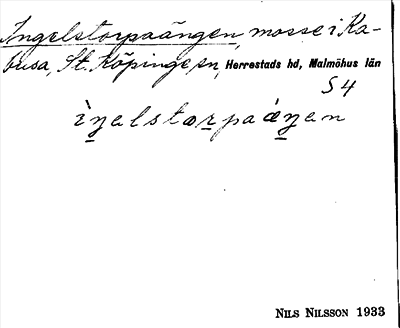 Ingelstorpaängen, mosse i Ka-
busa, St. Köpinge sn, Herrestads hd, Malmöhus län
S4
ìŋəlstorpaáŋən
NILS NILSSON 1933